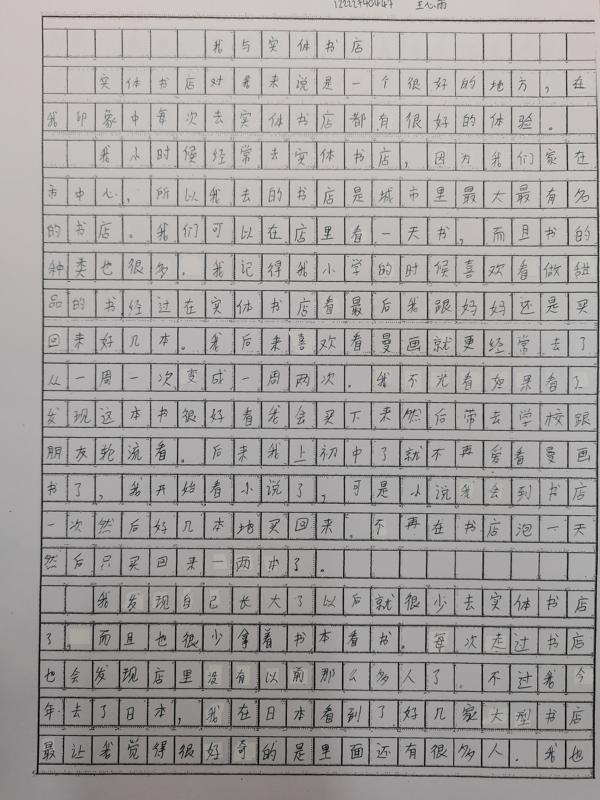 1222740447 王心雨
我与实体书店
实体书店对我来说是一个很好的地方，在
我印象中每次去实体书店都有很好的体验。
我小时候经常去实体书店，因为我们家在
市中心，所以我去的书店是城市里最大最有名
的书店。我们可以在店里看一天书，而且书的
种类也很多。我记得我小学的时候喜欢看做甜
品的书经过在实体书店看最后我跟妈妈还是买
回来好几本。我后来喜欢看曼画就更经常去了
从一周一次变成一周两次。我不光看如果看了
发现这本书很好看我会买下来然后带去学校跟
朋友轮流看。后来我上初中了就不再爱看曼画
书了，我开始看小说了，可是小说我会到书店
一次然后好几本地买回来.不再在书店泡一天
然后只买回来一两本了。
我发现自己长大了以后就很少去实体书店
了，而且也很少拿着书本看书。每次走过书店
也会发现店里没有以前那么多人了.不过我今
年去了日本，我在日本看到了好几家大型书店
最让我觉得很好奇的是里面还有很多人.我也